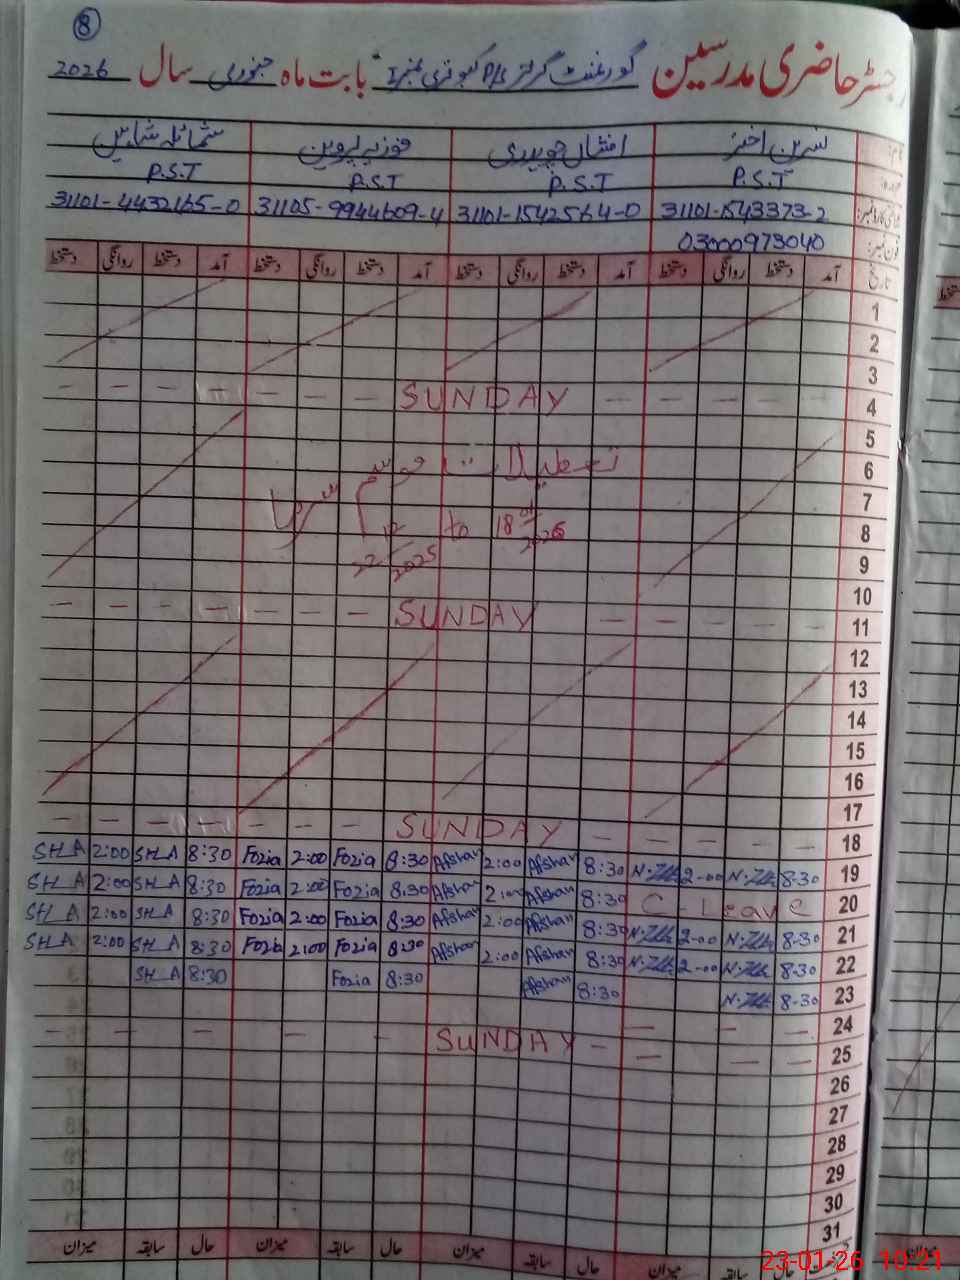 8
رجسٹر حاضری مدرسین گورنمنٹ گرلز P/S نمبر 1 بابت ماہ جنوری سال 2026
نسرین اختر افشاں چوہدری فوزیہ پروین شمائلہ شاہین
P.S.T P.S.T P.S.T P.S.T
شناختی کارڈ نمبر: 31101-1543373-2 31101-1542564-0 31105-9944609-4 31101-4432165-0
فون نمبر: 03000973040
تاریخ آمد دستخط روانگی دستخط آمد دستخط روانگی دستخط آمد دستخط روانگی دستخط آمد دستخط روانگی دستخط
1
2
3
4 SUNDAY
5
6 تعطیلات موسم سرما
7
8 22/12/2025 to 18/01/2026
9
10
11 SUNDAY
12
13
14
15
16
17
18 SUNDAY
SHA 2:00 SHA 8:30 Fozia 2:00 Fozia 8:30 Afshan 2:00 Afshan 8:30 2-00 8-30 19
SHA 2:00 SHA 8:30 Fozia 2:00 Fozia 8:30 Afshan 2:00 Afshan 8:30 C-Leave 20
SHA 2:00 SHA 8:30 Fozia 2:00 Fozia 8:30 Afshan 2:00 Afshan 8:30 2-00 8-30 21
SHA 2:00 SHA 8:30 Fozia 2:00 Fozia 8:30 Afshan 2:00 Afshan 8:30 2-00 8-30 22
SHA 8:30 Fozia 8:30 Afshan 8:30 8-30 23
24
25 SUNDAY
26
27
28
29
30
31
حال میزان حال سابقہ میزان حال سابقہ میزان حال سابقہ میزان
23-01-26 10:21